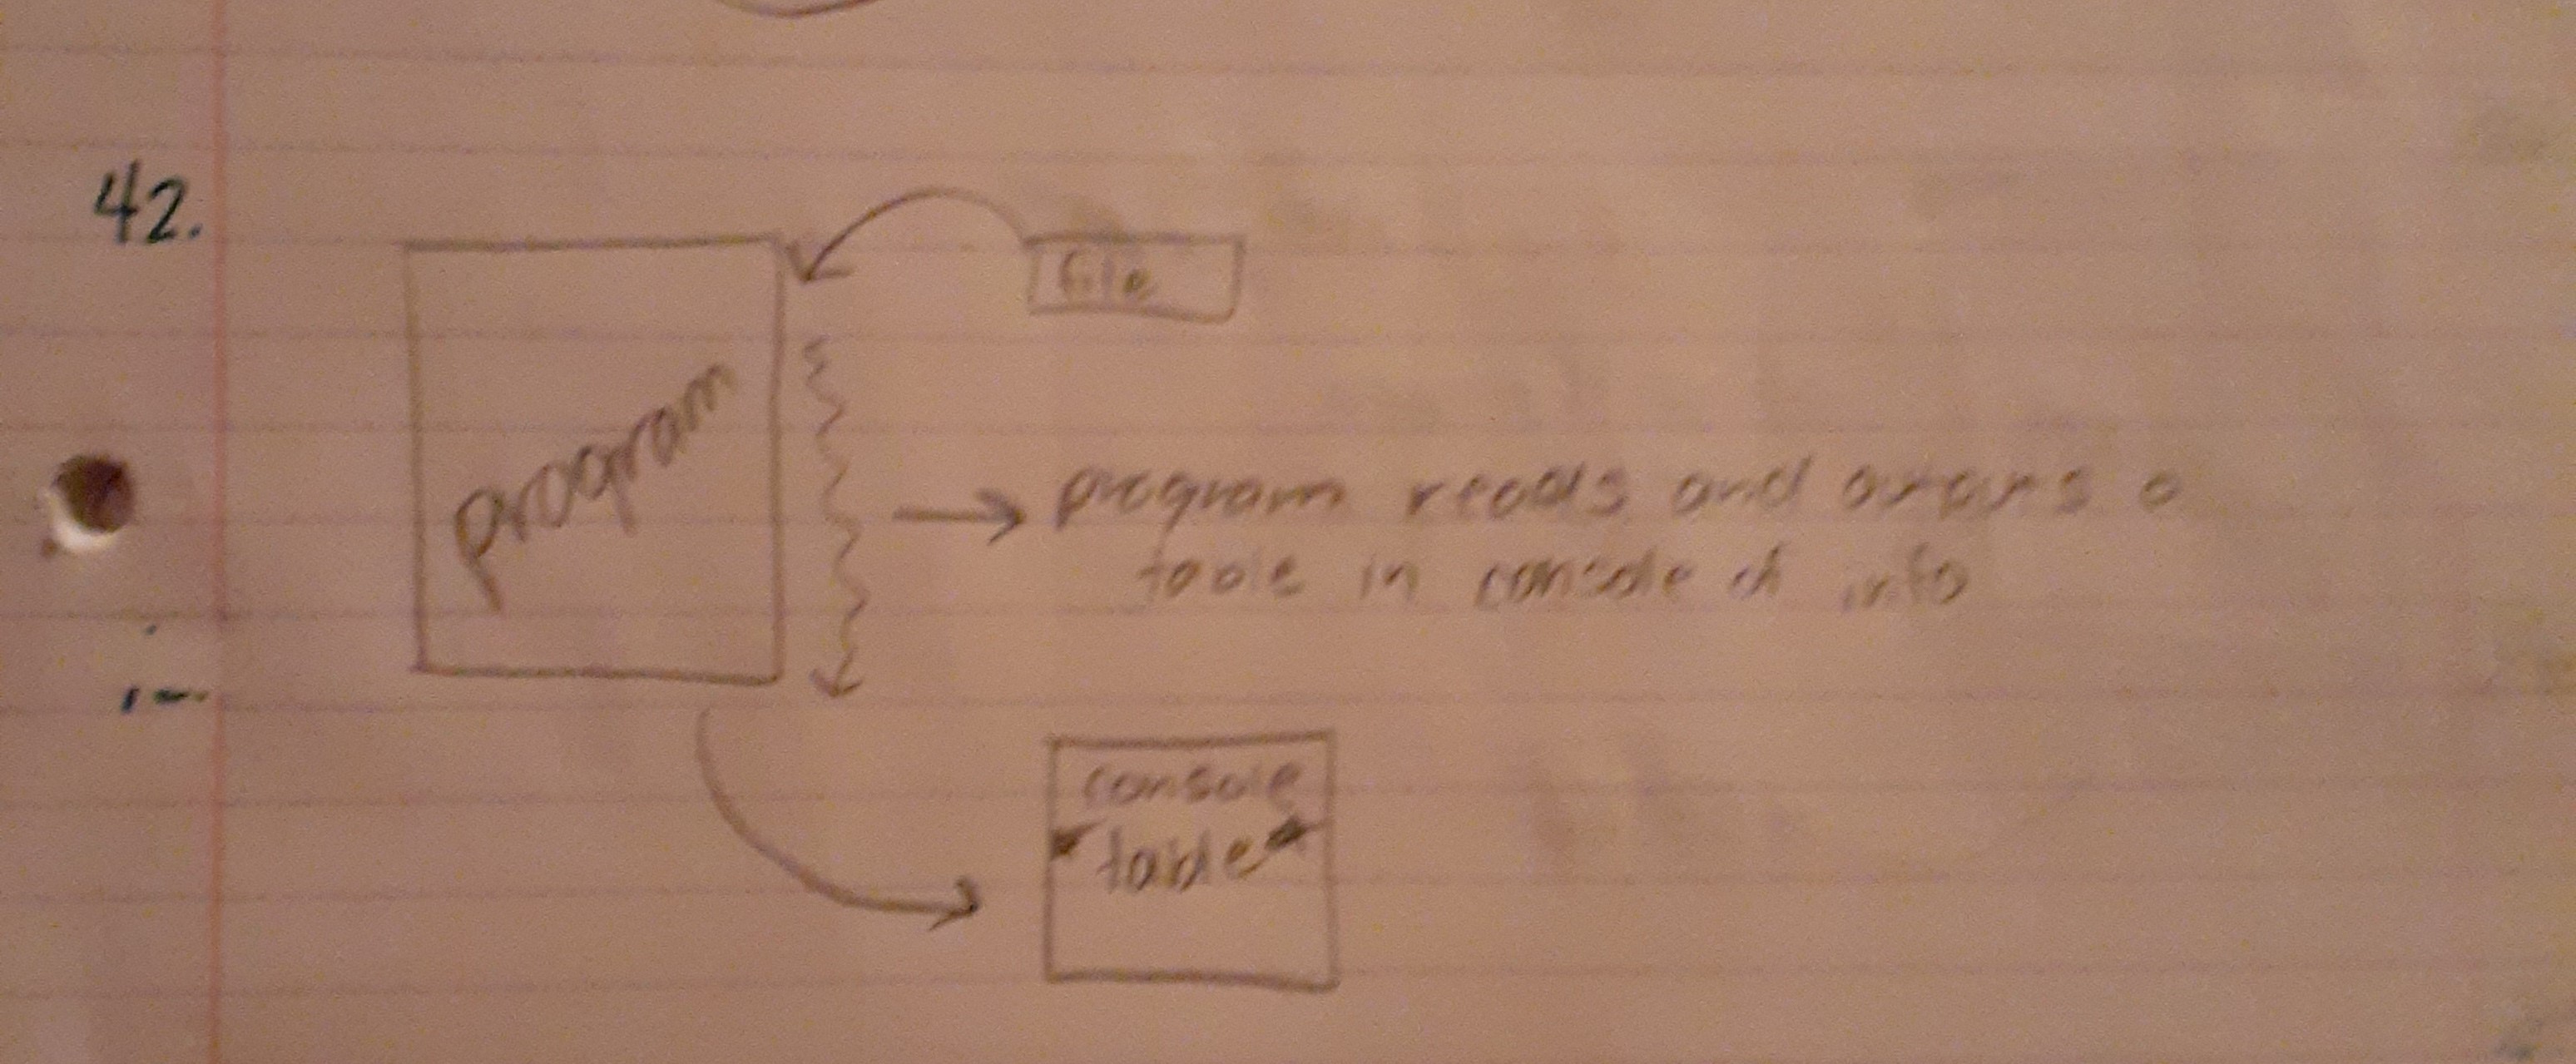 42.
file
program
program reads and outputs a
table in console of info
console
table